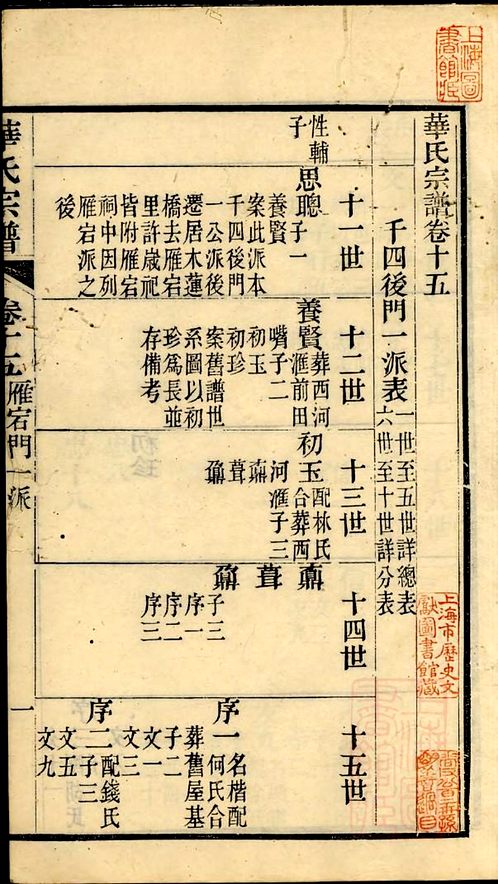 華氏宗譜卷十五
千四後門一派表
一世至五世詳總表
六世至十世詳分表
十一世
性輔
子
思聰
子一
養賢
案此派本
千四後門
一公派後
遷居木蓮
橋去雁宕
里許歲祀
皆附雁宕
祠中因列
雁宕派之
後
十二世
養賢
葬西河
滙前田
嘴子二
初玉
初珍
案舊譜世
系圖以初
珍爲長並
存備考
十三世
初玉
配林氏
合葬西
河滙子三
鼐
葺
鼒
十四世
鼐
葺
鼒
子三
序一
序二
序三
十五世
序一
名楷配
何氏合
葬舊屋基
子二
文一
文三
序二
配錢氏
子三
文五
文九
華氏宗譜
卷十五
雁宕門一派
一
上海圖
書館藏
上海市歷史文
獻圖書館藏